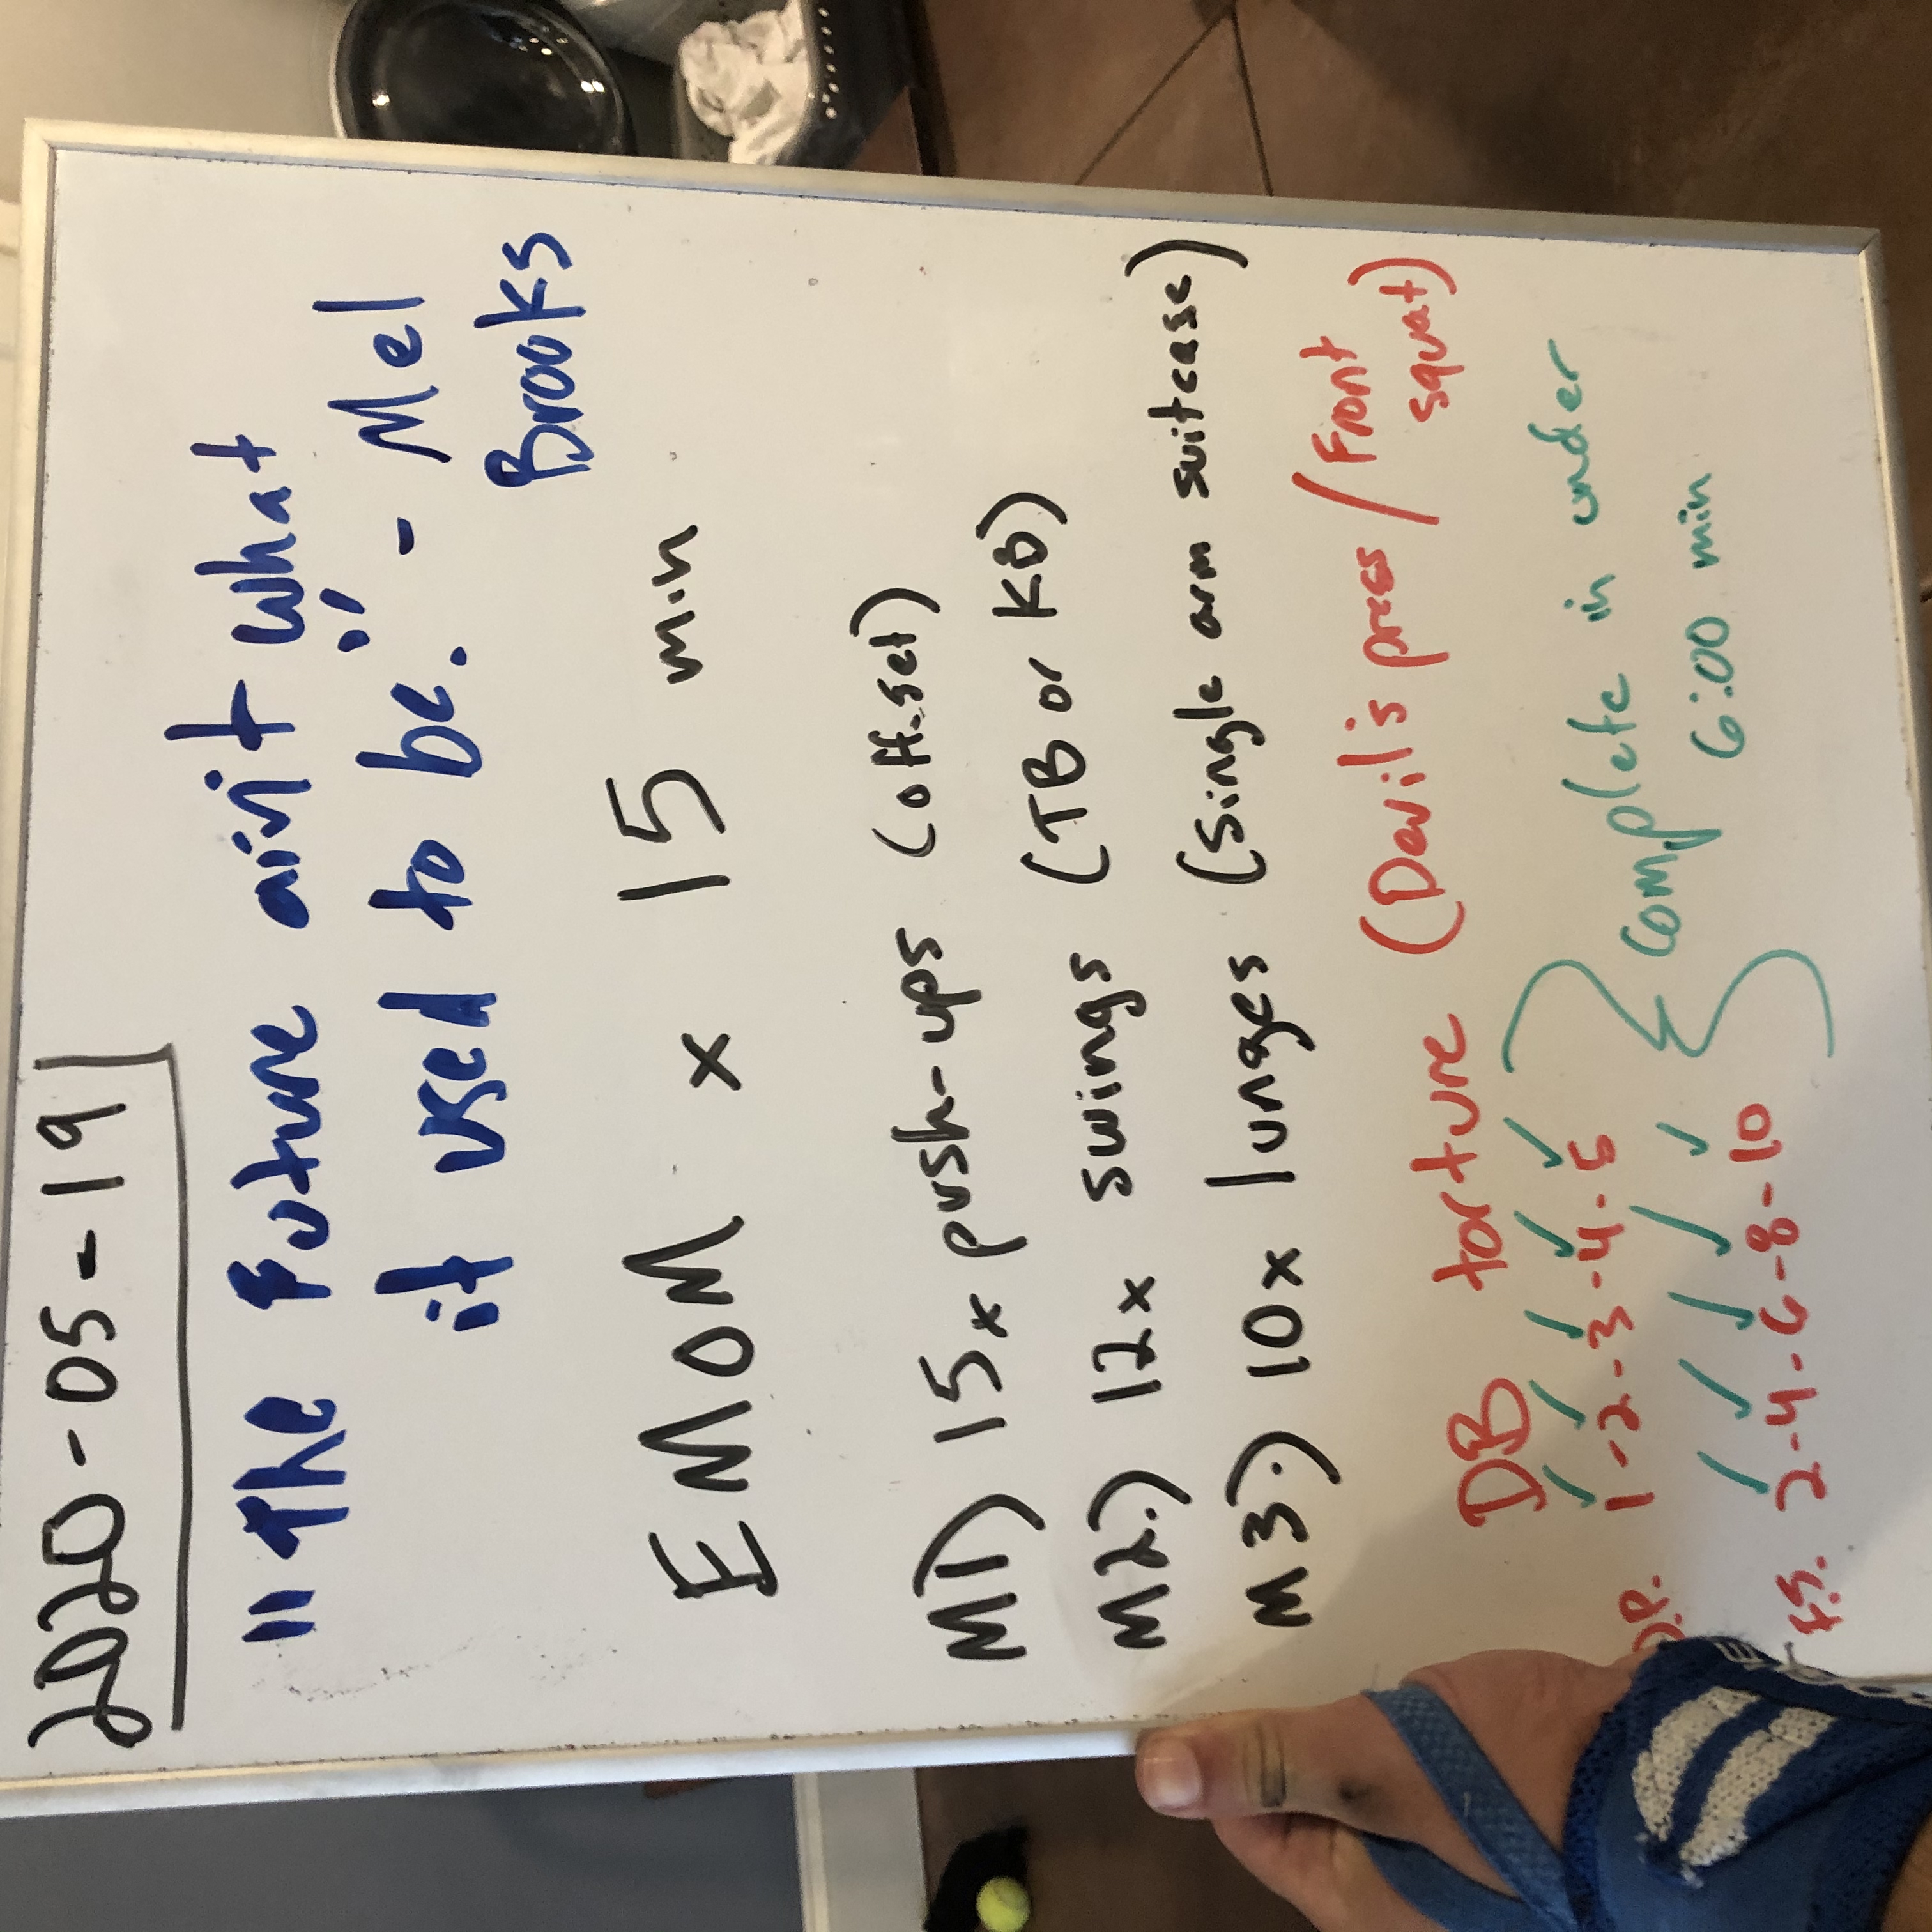 2020-05-19
"The Future ain't what
it used to be." - Mel
Brooks
EMOM x 15 min
M1) 15x push-ups (off-set)
M2.) 12x swings (TB or KB)
M3.) 10x lunges (Single arm suitcase)
DB torture (Devil's press / Front
squat)
D.P. 1-2-3-4-5
Complete in under
6:00 min
F.S. 2-4-6-8-10